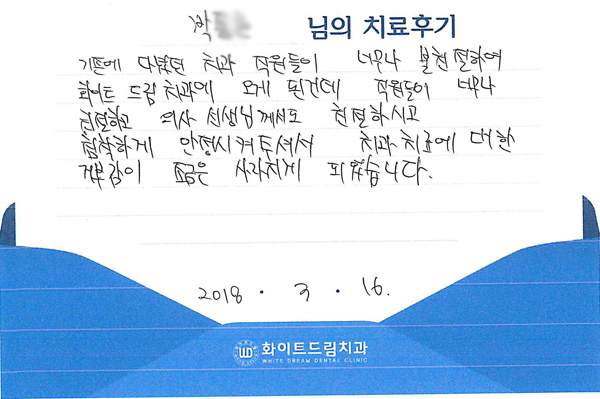 박 님의 치료후기
기존에 다녔던 치과 직원들이 너무나 불친절하여
화이트 드림 치과에 오게 된건데 직원들이 너무나
친절하고 의사 선생님께서도 친절하시고
침착하게 안정시켜주셔서 치과 치료에 대한
거부감이 조금은 사라지게 되었습니다.
2018 · 3 · 16.
화이트드림치과
WHITE DREAM DENTAL CLINIC